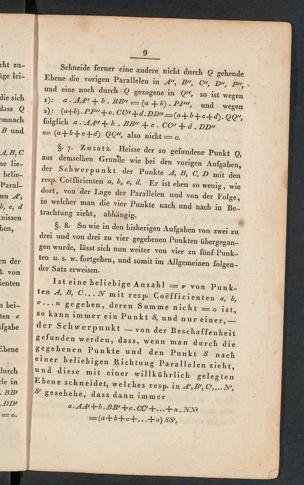 9
Schneide ferner eine andere nicht durch Q gehende
Ebene die vorigen Parallelen in A'', B'', C'', D'', P'',
und eine noch durch Q gezogene in Q'', so ist wegen
1): a. AA'' + b. BB'' = (a+b). PP'', und wegen
2): (a+b). PP''+c. CC''+d. DD''=(a+b+c+d). QQ'',
folglich a. AA'' + b. BB'' + c. CC'' + d. DD''
= (a+b+c+d) QQ'', also nicht = 0.
§. 7. Zusatz. Heisse der so gefundene Punkt Q,
aus demselben Grunde wie bei den vorigen Aufgaben,
der Schwerpunkt der Punkte A, B, C, D mit den
resp. Coëfficienten a, b, c, d. Er ist eben so wenig, wie
dort, von der Lage der Parallelen und von der Folge,
in welcher man die vier Punkte nach und nach in Be-
trachtung zieht, abhängig.
§. 8. So wie in den bisherigen Aufgaben von zwei zu
drei und von drei zu vier gegebenen Punkten übergegan-
gen wurde, lässt sich nun weiter von vier zu fünf Punk-
ten u. s. w. fortgehen, und somit im Allgemeinen folgen-
der Satz erweisen.
Ist eine beliebige Anzahl = ν von Punk-
ten A, B, C...N mit resp. Coëfficienten a, b,
c...n gegeben, deren Summe nicht = 0 ist,
so kann immer ein Punkt S, und nur einer, —
der Schwerpunkt — von der Beschaffenheit
gefunden werden, dass, wenn man durch die
gegebenen Punkte und den Punkt S nach
einer beliebigen Richtung Parallelen zieht,
und diese mit einer willkührlich gelegten
Ebene schneidet, welches resp. in A', B', C',...N',
S' geschehe, dass dann immer
a. AA'+b. BB'+c. CC'+...+n. NN'
=(a+b+c+...+n) SS',